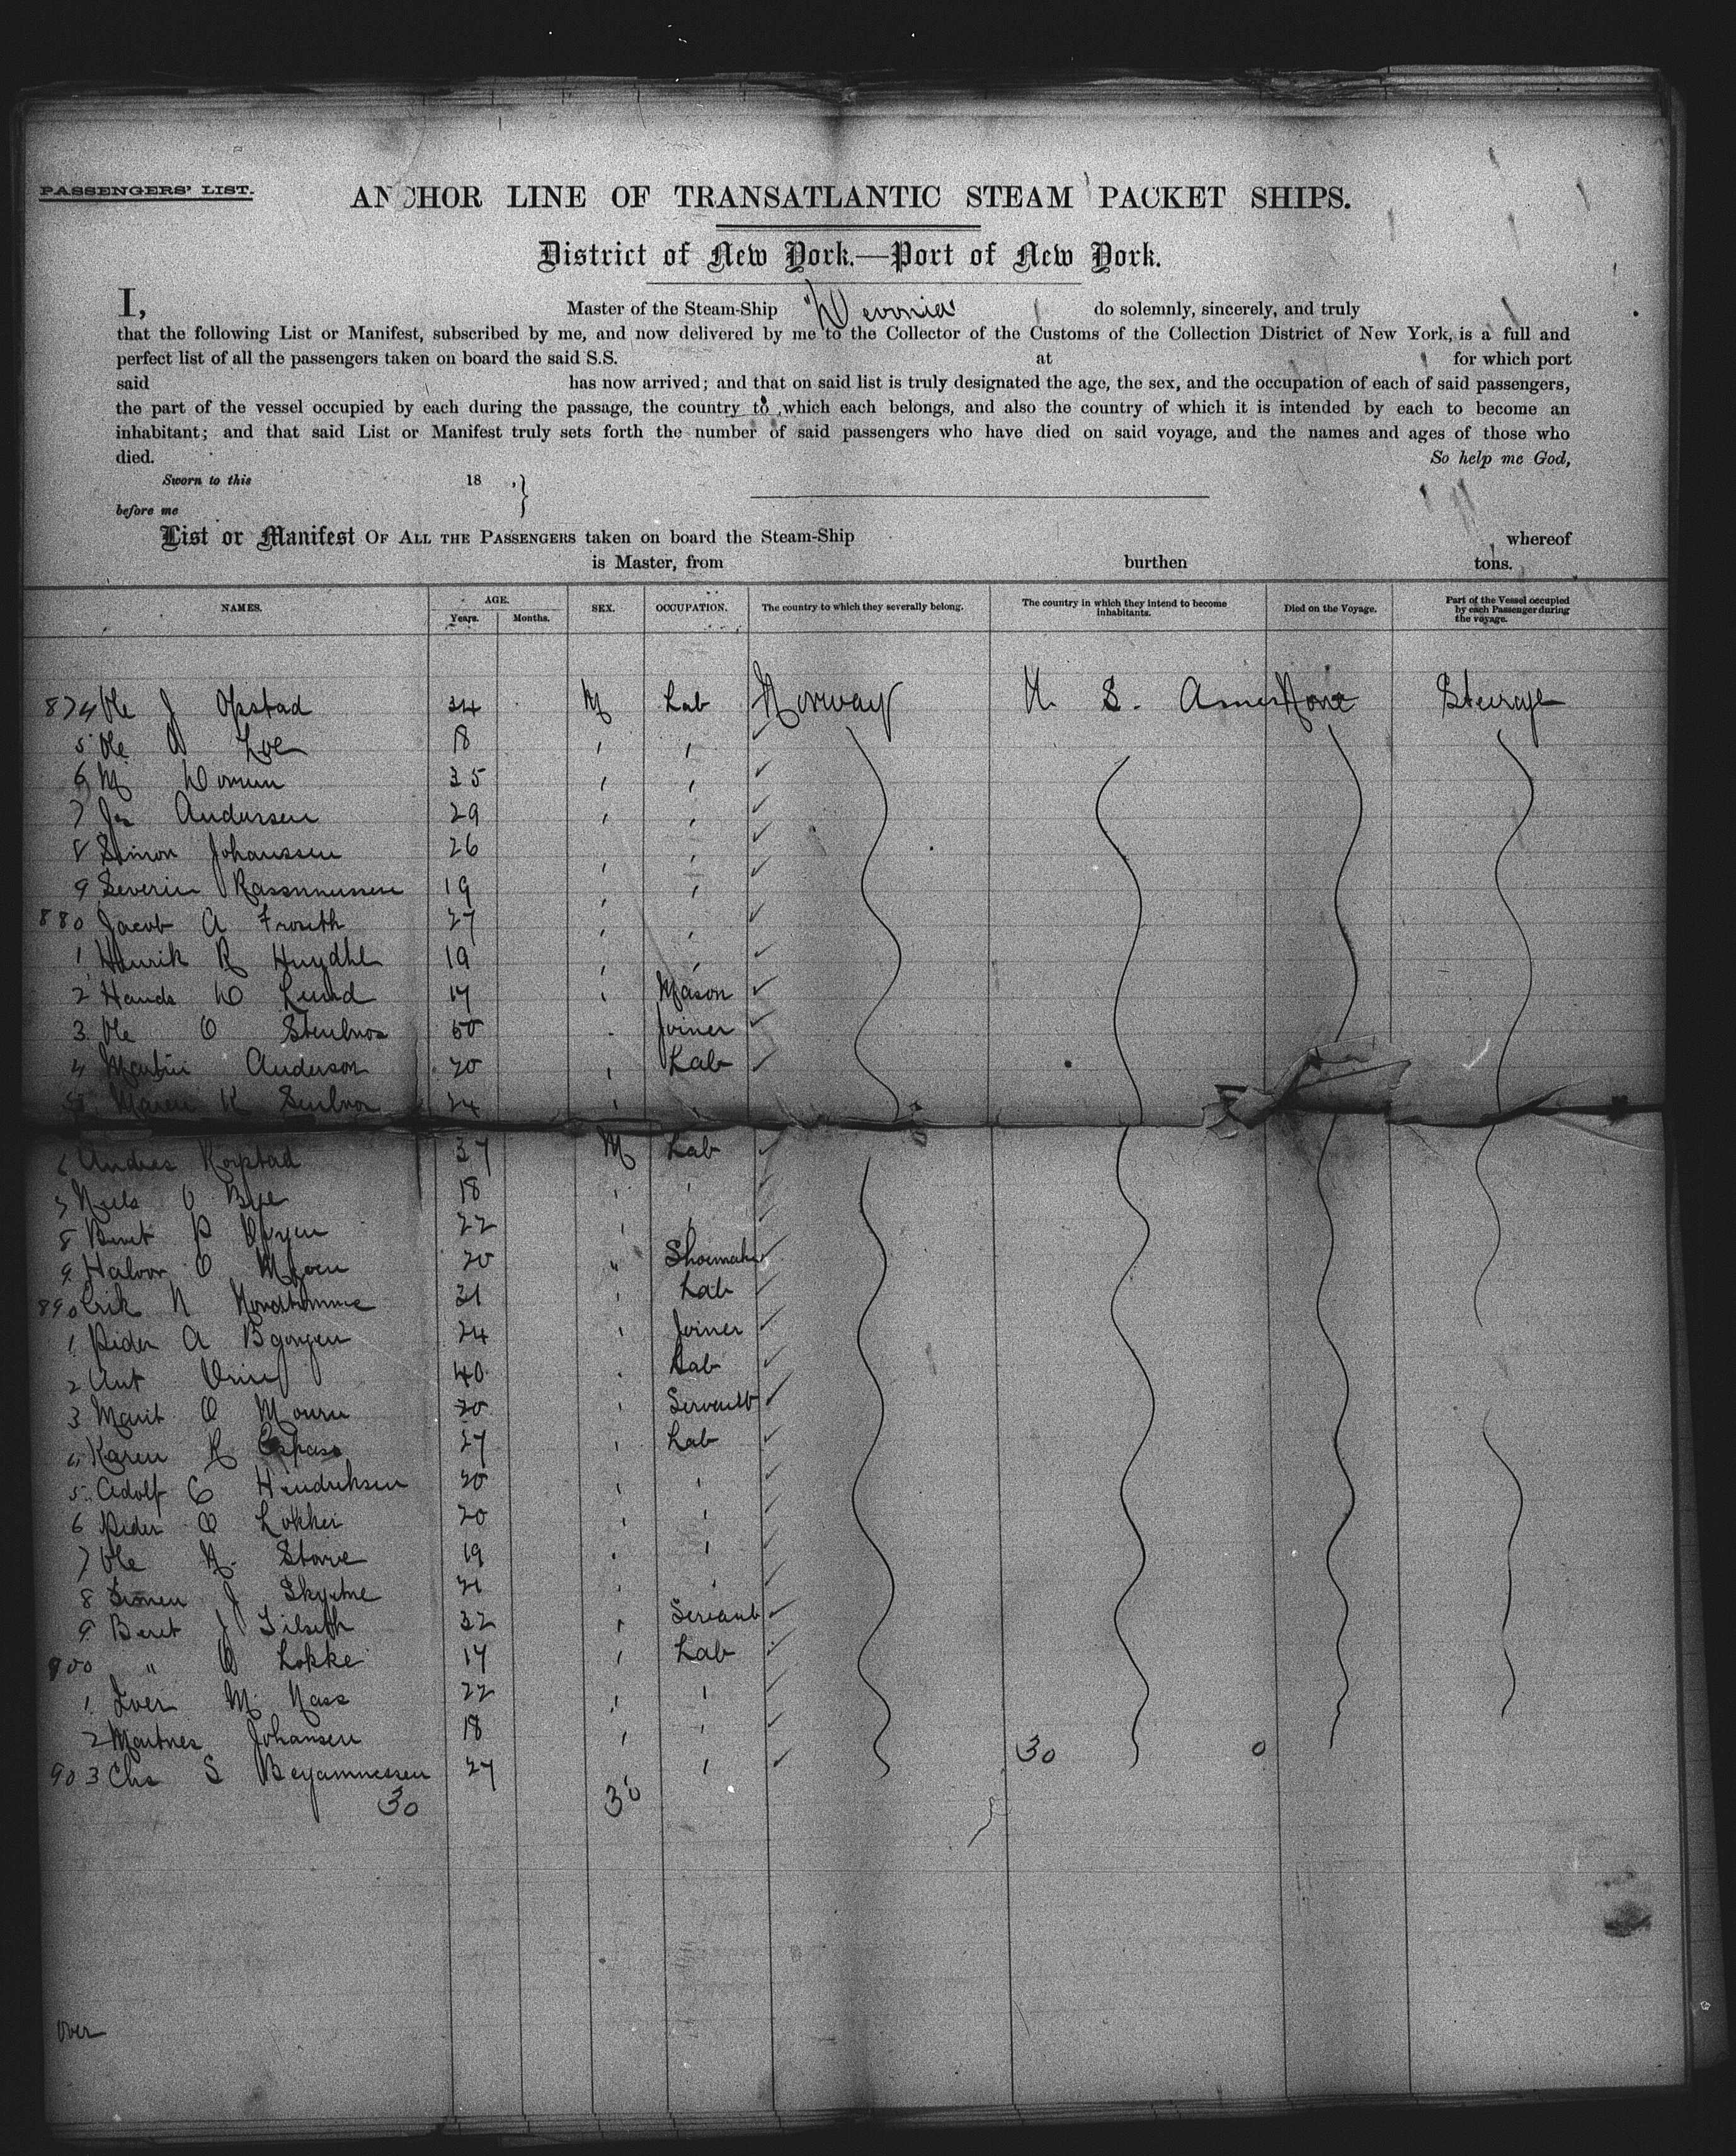 PASSENGERS' LIST.
ANCHOR LINE OF TRANSATLANTIC STEAM PACKET SHIPS.
District of New York.—Port of New York.
I, Master of the Steam-Ship "Devonia" do solemnly, sincerely, and truly
that the following List or Manifest, subscribed by me, and now delivered by me to the Collector of the Customs of the Collection District of New York, is a full and
perfect list of all the passengers taken on board the said S.S. at for which port
said has now arrived; and that on said list is truly designated the age, the sex, and the occupation of each of said passengers,
the part of the vessel occupied by each during the passage, the country to which each belongs, and also the country of which it is intended by each to become an
inhabitant; and that said List or Manifest truly sets forth the number of said passengers who have died on said voyage, and the names and ages of those who
died. So help me God,
Sworn to this 18 ,
before me
List or Manifest OF ALL THE PASSENGERS taken on board the Steam-Ship whereof
is Master, from burthen tons.
NAMES. AGE. Years. Months. SEX. OCCUPATION. The country to which they severally belong. The country in which they intend to become inhabitants. Died on the Voyage. Part of the Vessel occupied by each Passenger during the voyage.
874 Ole J Opstad 34 M Lab Norway U. S. Amer None Steerage
5 Ole O Loe 18 " "
6 M 35 " "
7 Js Andersen 29 " "
8 Simon Johanssen 26 " "
9 Severin Rassmussen 19 " "
880 Jacob A Froseth 27 " "
1 Henrik R 19 " "
2 Hands O Lund 17 " Mason
3 Ole O 50 " Joiner
4 Martin Anderson 20 " Lab
5 Maren K 24 " "
6 Andres 37 M Lab
7 Niels O Bye 18 " "
8 Beret P 22 " "
9 Halvor O Moen 20 " Shoemaker
890 Erik N 31 " Lab
1 Peder A 24 " Joiner
2 Ant 40 " Lab
3 Marit O 20 " Servant
4 Karen R 27 " Lab
5 Adolf C Hendriksen 20 " "
6 Peder O Lokker 20 " "
7 Ole N. Stove 19 " "
8 J 21 " "
9 Beret J Tilseth 32 " Servant
900 " O Lokke 17 " Lab
1 Iver M. Nass 22 " "
2 Martnes Johansen 18 " "
903 Chs S 27 " "
30 30 30 0
Over